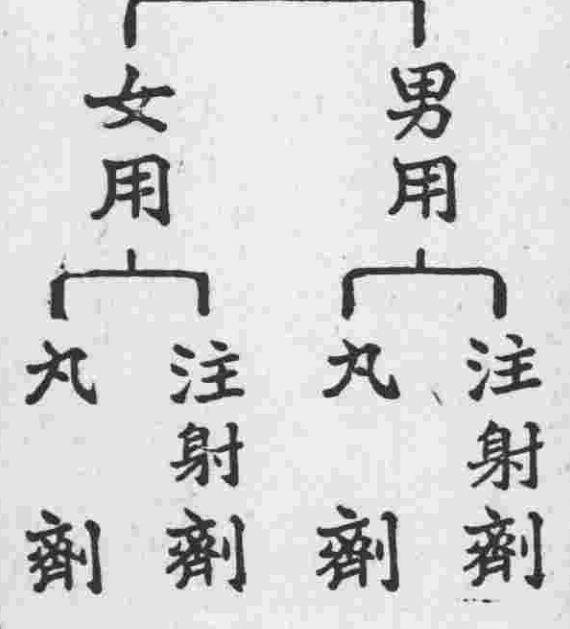 男用
注射劑
丸劑
女用
注射劑
丸劑